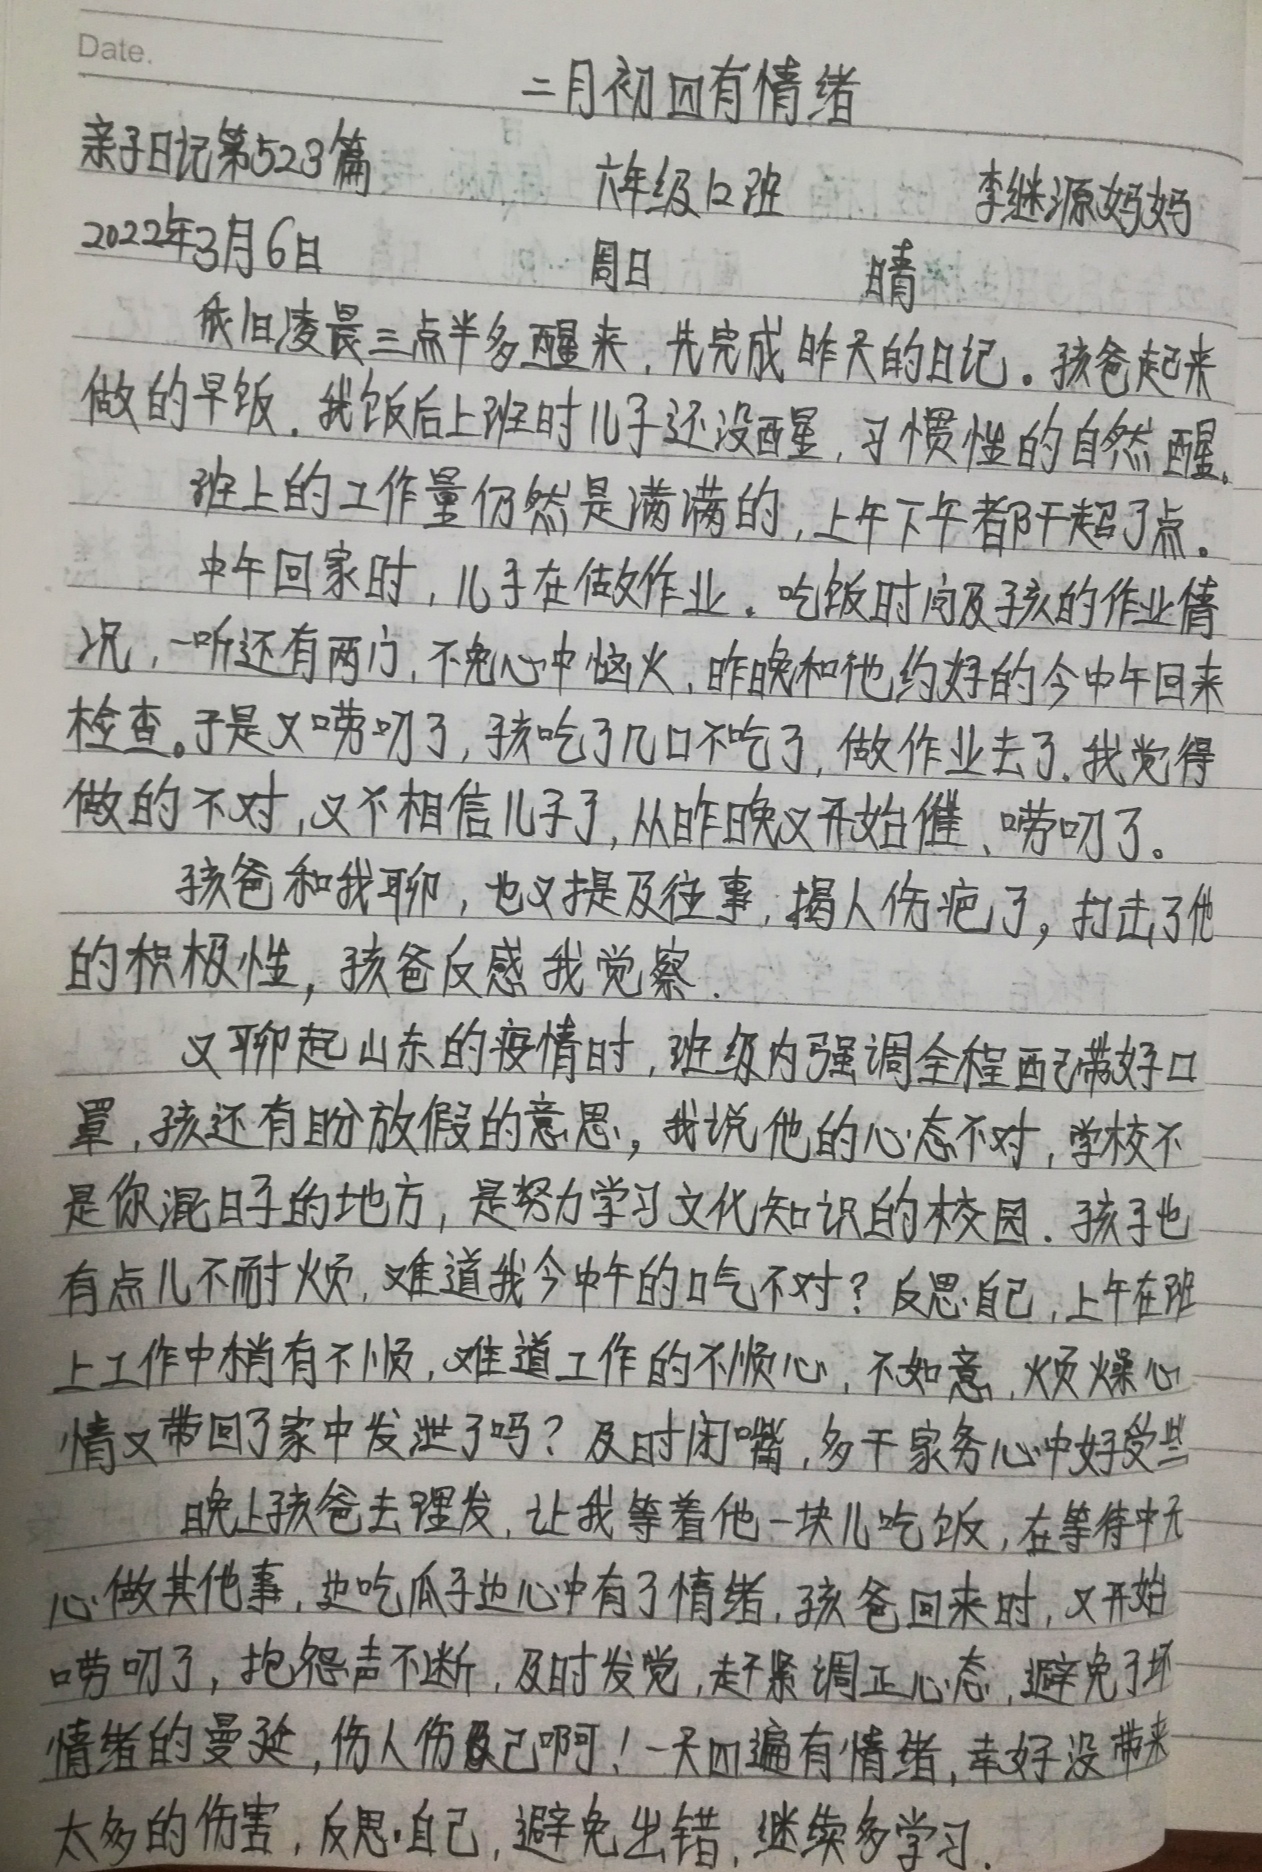 Date.
二月初四有情绪
亲子日记第523篇 六年级12班 李继源妈妈
2022年3月6日 周日 晴
依旧凌晨三点半多醒来，先完成昨天的日记。孩爸起来
做的早饭。我饭后上班时儿子还没醒，习惯性的自然醒。
班上的工作量仍然是满满的，上午下午都干超了点。
中午回家时，儿子在做作业。吃饭时问及孩的作业情
况，一听还有两门，不免心中恼火，昨晚和他约好的今中午回来
检查。于是又唠叨了，孩吃了几口不吃了，做作业去了。我觉得
做的不对，又不相信儿子了，从昨晚又开始催、唠叨了。
孩爸和我聊，也又提及往事，揭人伤疤了，打击了他
的积极性，孩爸反感我觉察.
又聊起山东的疫情时，班级内强调全程配带好口
罩，孩还有盼放假的意思，我说他的心态不对，学校不
是你混日子的地方，是努力学习文化知识的校园.孩子也
有点儿不耐烦，难道我今中午的口气不对？反思自己，上午在班
上工作中稍有不顺，难道工作的不顺心，不如意，烦燥心
情又带回了家中发泄了吗？及时闭嘴，多干家务心中好受些
晚上孩爸去理发，让我等着他一块儿吃饭，在等待中无
心做其他事，边吃瓜子边心中有了情绪，孩爸回来时，又开始
唠叨了，抱怨声不断，及时发觉，赶紧调正心态，避免了坏
情绪的曼延，伤人伤己啊！一天四遍有情绪，幸好没带来
太多的伤害，反思自己，避免出错，继续多学习.